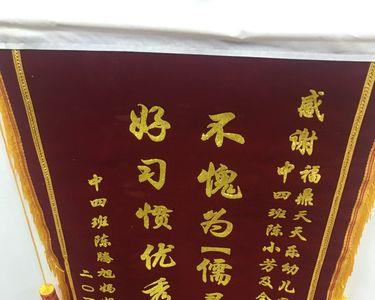 感谢福鼎天天乐幼儿
中四班陈小芳及
不愧为一儒
好习惯优秀
中四班陈腾旭妈
二〇